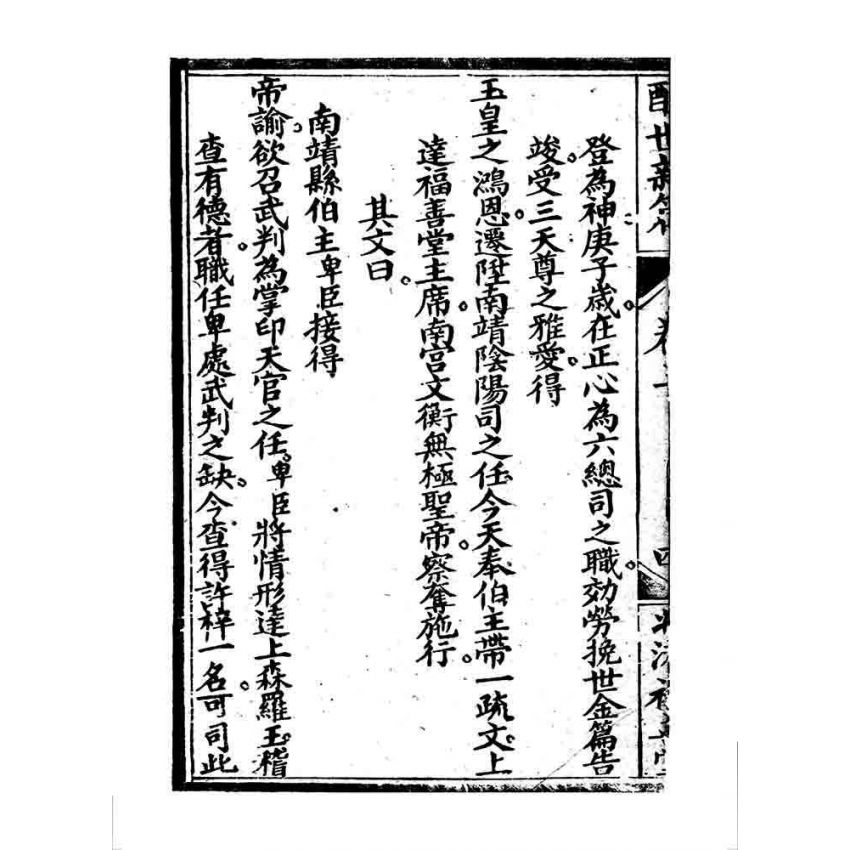 醒世新篇 卷 四
登為神庚子歲。在正心為六總司之職。効勞挽世金篇告
竣。受三天尊之雅愛。得
玉皇之鴻恩。遷陞南靖陰陽司之任。今天奉伯主帶一疏文。上
達福善堂主席。南宮文衡無極聖帝。察奪施行。
其文曰。
南靖縣伯主卑臣接得
帝諭。欲召武判為掌印天官之任。卑臣將情形達上森羅王。稽
查有德者。職任卑處武判之缺。今查得許梓一名。可司此